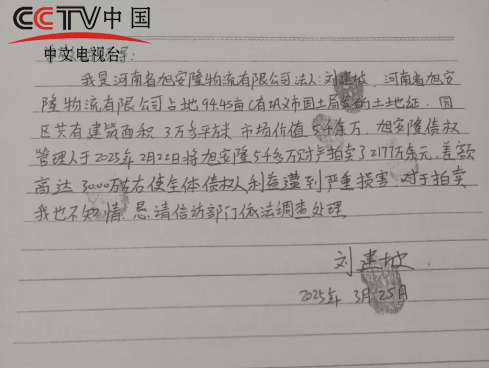 CCTV中国
中文电视台
导:
我是河南省旭安隆物流有限公司法人:刘建坡,河南省旭安
隆物流有限公司占地99.45亩(有巩义市国土局发的土地证,园
区共有建筑面积3万多平方米,市场价值5千余万,旭安隆债权
管理人于2025年2月22日将旭安隆5千多万财产拍卖了2177万余元,差额
高达3000万左右使全体债权人利益遭到严重损害,对于拍卖
我也不知情,恳请信访部门依法调查处理.
刘建坡
2025年3月25日